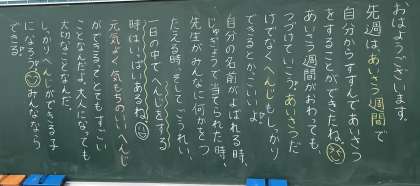 おはようございます。
先週は あいさつ週間で
自分からすすんであいさつ
をすることができたね。
あいさつ週間がおわっても、
つづけていこう!あいさつだ
けでなく、へんじもしっかり
できるとかっこいいよ。
自分の名前がよばれる時、
じゅぎょうで当てられた時、
先生がみんなに何かをつ
たえる時、そして こうれい、
一日の中で へんじをする
時はいっぱいあるね
元気よく気もちのいいへんじ
ができるってとてもすごい
ことなんだよ。大人になっても
大切なことなんだ。
しっかりへんじができる子
になろう みんななら
できる